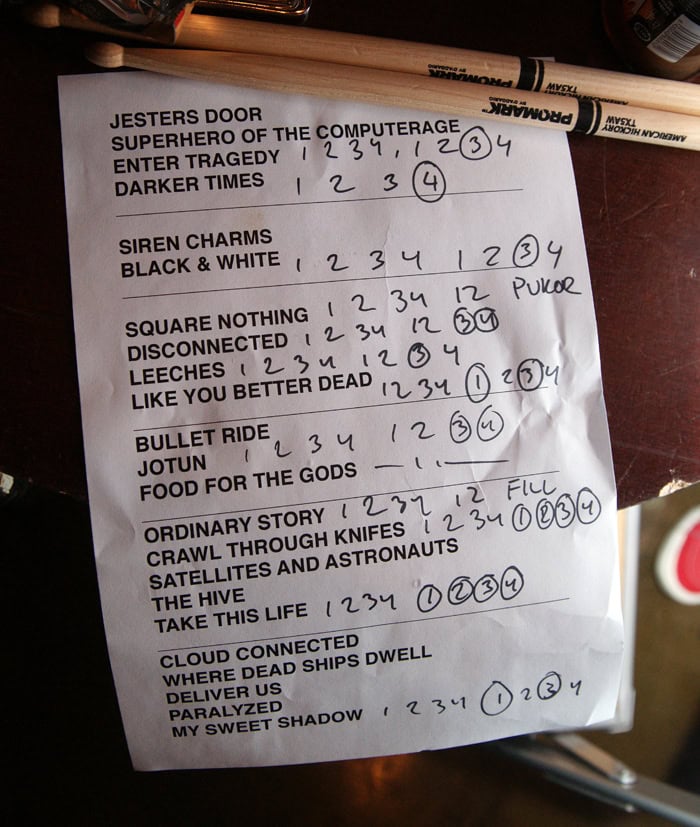 PROMARK
BY D'ADDARIO
TX5AW
PROMARK
BY D'ADDARIO
AMERICAN HICKORY
TX5AW
JESTERS DOOR
SUPERHERO OF THE COMPUTERAGE
ENTER TRAGEDY 1 2 3 4, 1 2 3 4
DARKER TIMES 1 2 3 4
SIREN CHARMS
BLACK & WHITE 1 2 3 4 1 2 3 4
SQUARE NOTHING 1 2 3 4 1 2 PUKOR
DISCONNECTED 1 2 3 4 1 2 3 4
LEECHES 1 2 3 4 1 2 3 4
LIKE YOU BETTER DEAD 1 2 3 4 1 2 3 4
BULLET RIDE
JOTUN 1 2 3 4 1 2 3 4
FOOD FOR THE GODS — 1 1 —
ORDINARY STORY 1 2 3 4 1 2 FILL
CRAWL THROUGH KNIFES 1 2 3 4 1 2 3 4
SATELLITES AND ASTRONAUTS
THE HIVE
TAKE THIS LIFE 1 2 3 4 1 2 3 4
CLOUD CONNECTED
WHERE DEAD SHIPS DWELL
DELIVER US
PARALYZED
MY SWEET SHADOW 1 2 3 4 1 2 3 4